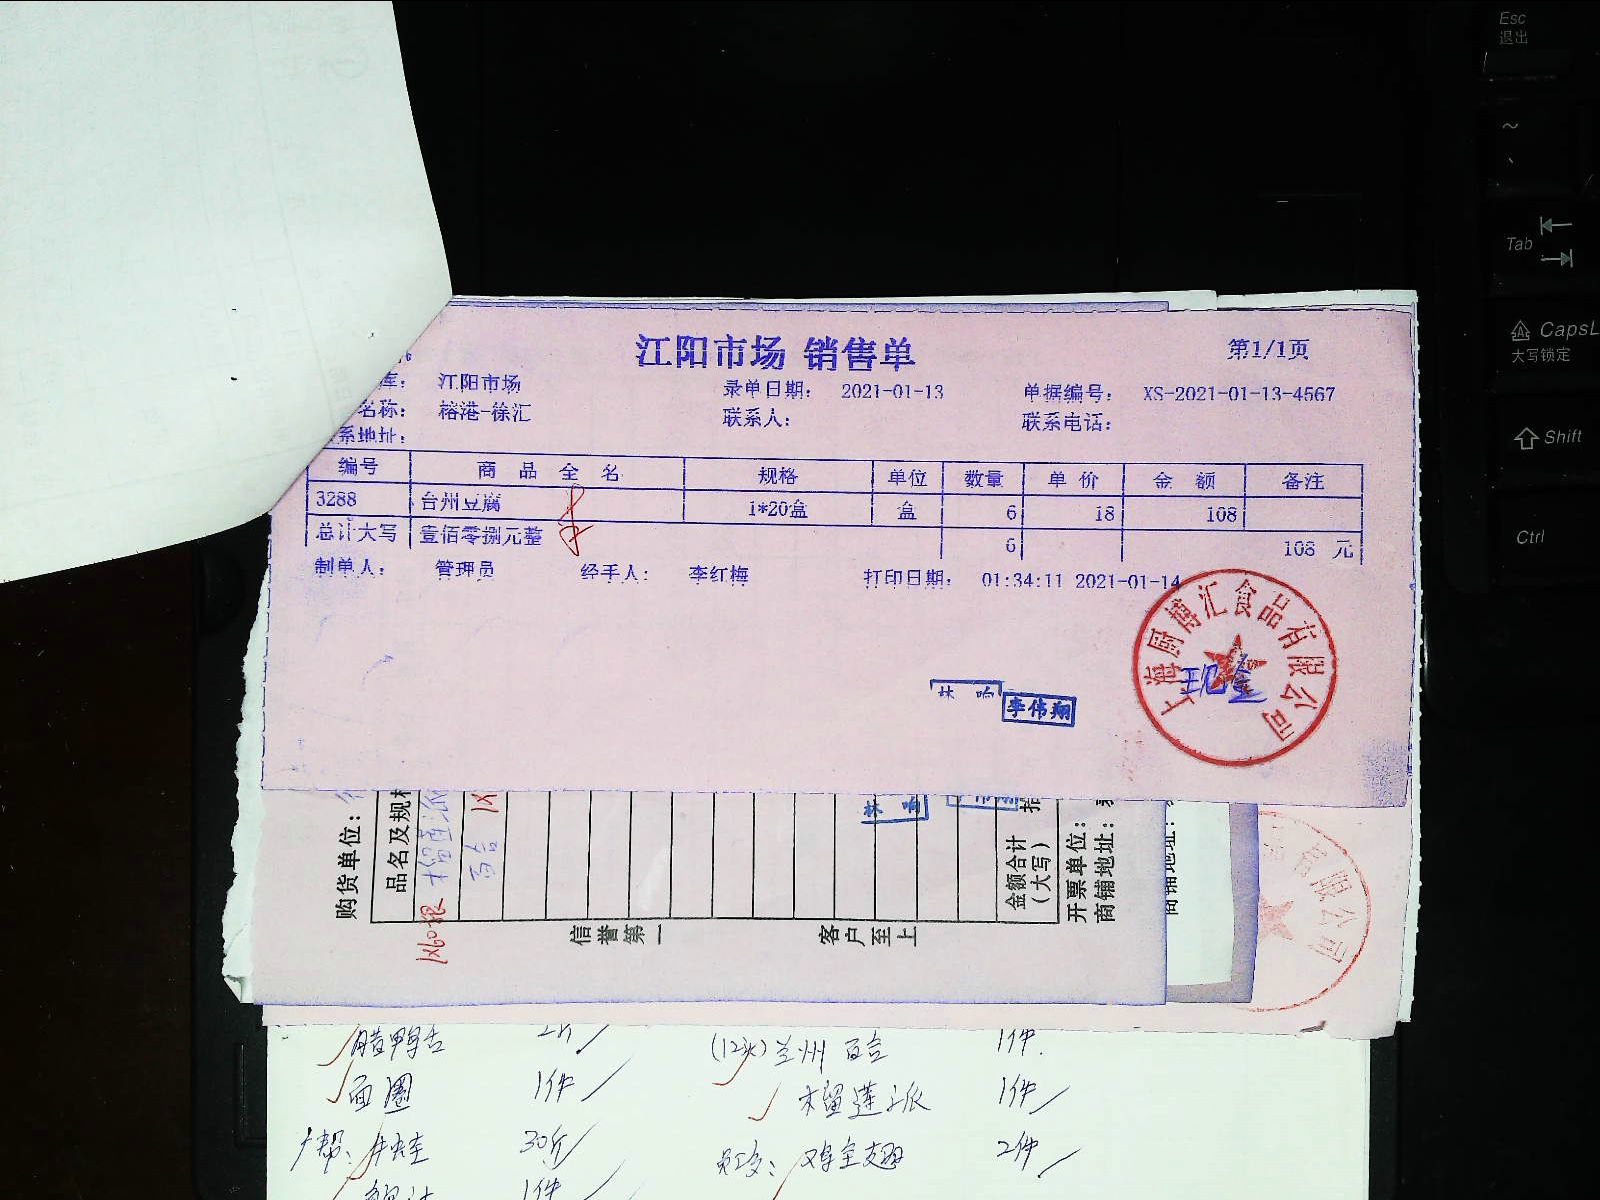 江阳市场 销售单
第1/1页
库： 江阳市场 录单日期： 2021-01-13 单据编号： XS-2021-01-13-4567
名称： 榕港-徐汇 联系人： 联系电话：
系地址：
编号 商品全名 规格 单位 数量 单价 金额 备注
3288 台州豆腐 1*20盒 盒 6 18 108
总计大写 壹佰零捌元整 6 108 元
制单人： 管理员 经手人： 李红梅 打印日期： 01:34:11 2021-01-14
上海厨博汇食品有限公司
现金
李伟翔
购货单位：
品名及规格
榴莲派
百合
1X60根
信誉第一
客户至上
金额合计
（大写）
开票单位：
商铺地址：
商铺地址：
限公司
腊鸭舌 2斤
(12头)兰州百合 1件
面圈 1件
榴莲派 1件
30斤
鸡全翅 2件
1件
Esc
退出
~
Tab
CapsL
大写锁定
Shift
Ctrl